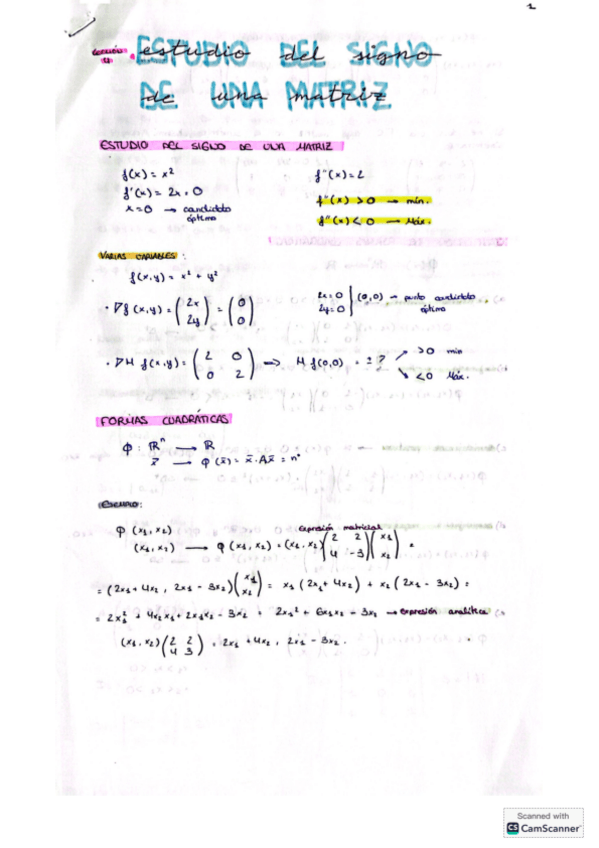 1
Lección 4
ESTUDIO DEL SIGNO
DE UNA MATRIZ
ESTUDIO DEL SIGNO DE UNA MATRIZ
f(x) = x²
f''(x) = 2
f'(x) = 2x = 0
f''(x) > 0 → mín.
x=0 → candidato óptimo
f''(x) < 0 → Máx.
VARIAS VARIABLES:
f(x,y) = x² + y²
· ∇f(x,y) = (2x 2y) = (0 0)
2x=0 2y=0 } (0,0) → punto candidato óptimo
· ∇H f(x,y) = (2 0 0 2) → H f(0,0) = ± ? ↗ >0 mín ↘ <0 Máx.
FORMAS CUADRÁTICAS
φ : ℝⁿ → ℝ
x̄ → φ(x̄) = x̄·Ax̄ = nº
EJEMPLO:
φ (x₁, x₂) expresión matricial
(x₁, x₂) → φ (x₁, x₂) = (x₁, x₂)(2 2 4 -3)(x₁ x₂) =
= (2x₁ + 4x₂, 2x₁ - 3x₂)(x₁ x₂) = x₁ (2x₁ + 4x₂) + x₂ (2x₁ - 3x₂) =
= 2x₁² + 4x₂x₁ + 2x₁x₂ - 3x₂ = 2x₁² + 6x₁x₂ - 3x₂ → expresión analítica
(x₁, x₂)(2 2 4 3) = 2x₁ + 4x₂, 2x₁ - 3x₂.
Scanned with
CS CamScanner